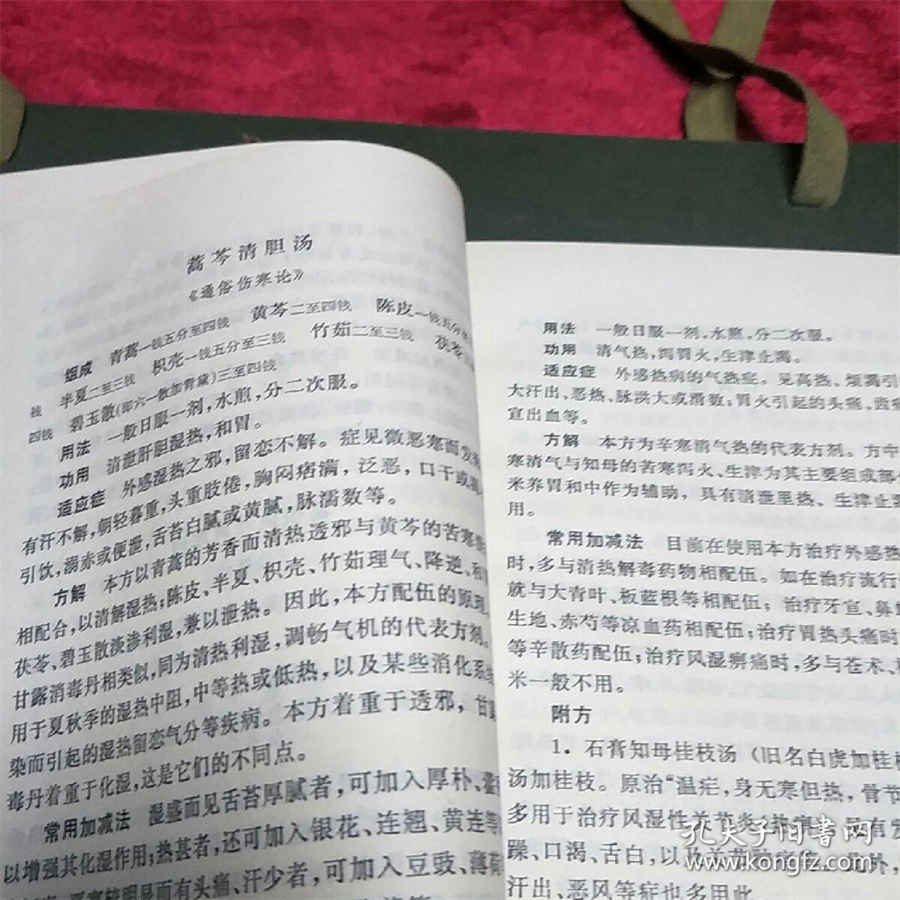 蒿芩清胆汤
《通俗伤寒论》
组成 青蒿一钱五分至四钱 黄芩二至四钱 陈皮一钱五分
钱 半夏二至三钱 枳壳一钱五分至三钱 竹茹二至三钱 茯苓
四钱 碧玉散(即六一散加青黛)三至四钱
用法 一般日服一剂,水煎,分二次服。
功用 清泄肝胆湿热,和胃。
适应症 外感湿热之邪,留恋不解。症见微恶寒而发
有汗不解,朝轻暮重,头重肢倦,胸闷痞满,泛恶,口干或
引饮,溺赤或便泄,舌苔白腻或黄腻,脉濡数等。
方解 本方以青蒿的芳香而清热透邪与黄芩的苦寒
相配合,以清解湿热;陈皮、半夏、枳壳、竹茹理气、降逆、和
茯苓、碧玉散淡渗利湿,兼以泄热。因此,本方配伍的原理
甘露消毒丹相类似,同为清热利湿,调畅气机的代表方剂。
用于夏秋季的湿热中阻,中等热或低热,以及某些消化系
染而引起的湿热留恋气分等疾病。本方着重于透邪,甘
毒丹着重于化湿,这是它们的不同点。
常用加减法 湿盛而见舌苔厚腻者,可加入厚朴、藿
以增强其化湿作用;热甚者,还可加入银花、连翘、黄连等
恶寒较明显而有头痛、汗少者,可加入豆豉、薄荷
用法 一般日服一剂,水煎,分二次服。
功用 清气热,泻胃火,生津止渴。
适应症 外感热病的气热症。见高热、烦渴引
大汗出、恶热、脉洪大或滑数;胃火引起的头痛、齿痛
宣出血等。
方解 本方为辛寒清气热的代表方剂。方中
寒清气与知母的苦寒泻火、生津为其主要组成部
米养胃和中作为辅助,具有清泄里热、生津止
用。
常用加减法 目前在使用本方治疗外感热
时,多与清热解毒药物相配伍。如在治疗流行
就与大青叶、板蓝根等相配伍;治疗牙宣、鼻
生地、赤芍等凉血药相配伍;治疗胃热头痛时
等辛散药配伍;治疗风湿痹痛时,多与苍术、
米一般不用。
附方
1. 石膏知母桂枝汤(旧名白虎加桂枝
汤加桂枝。原治“温疟,身无寒但热,骨节
多用于治疗风湿性关节炎,热
躁、口渴、舌白,以
汗出、恶风等症也多用此。
孔夫子旧书网
www.kongfz.com